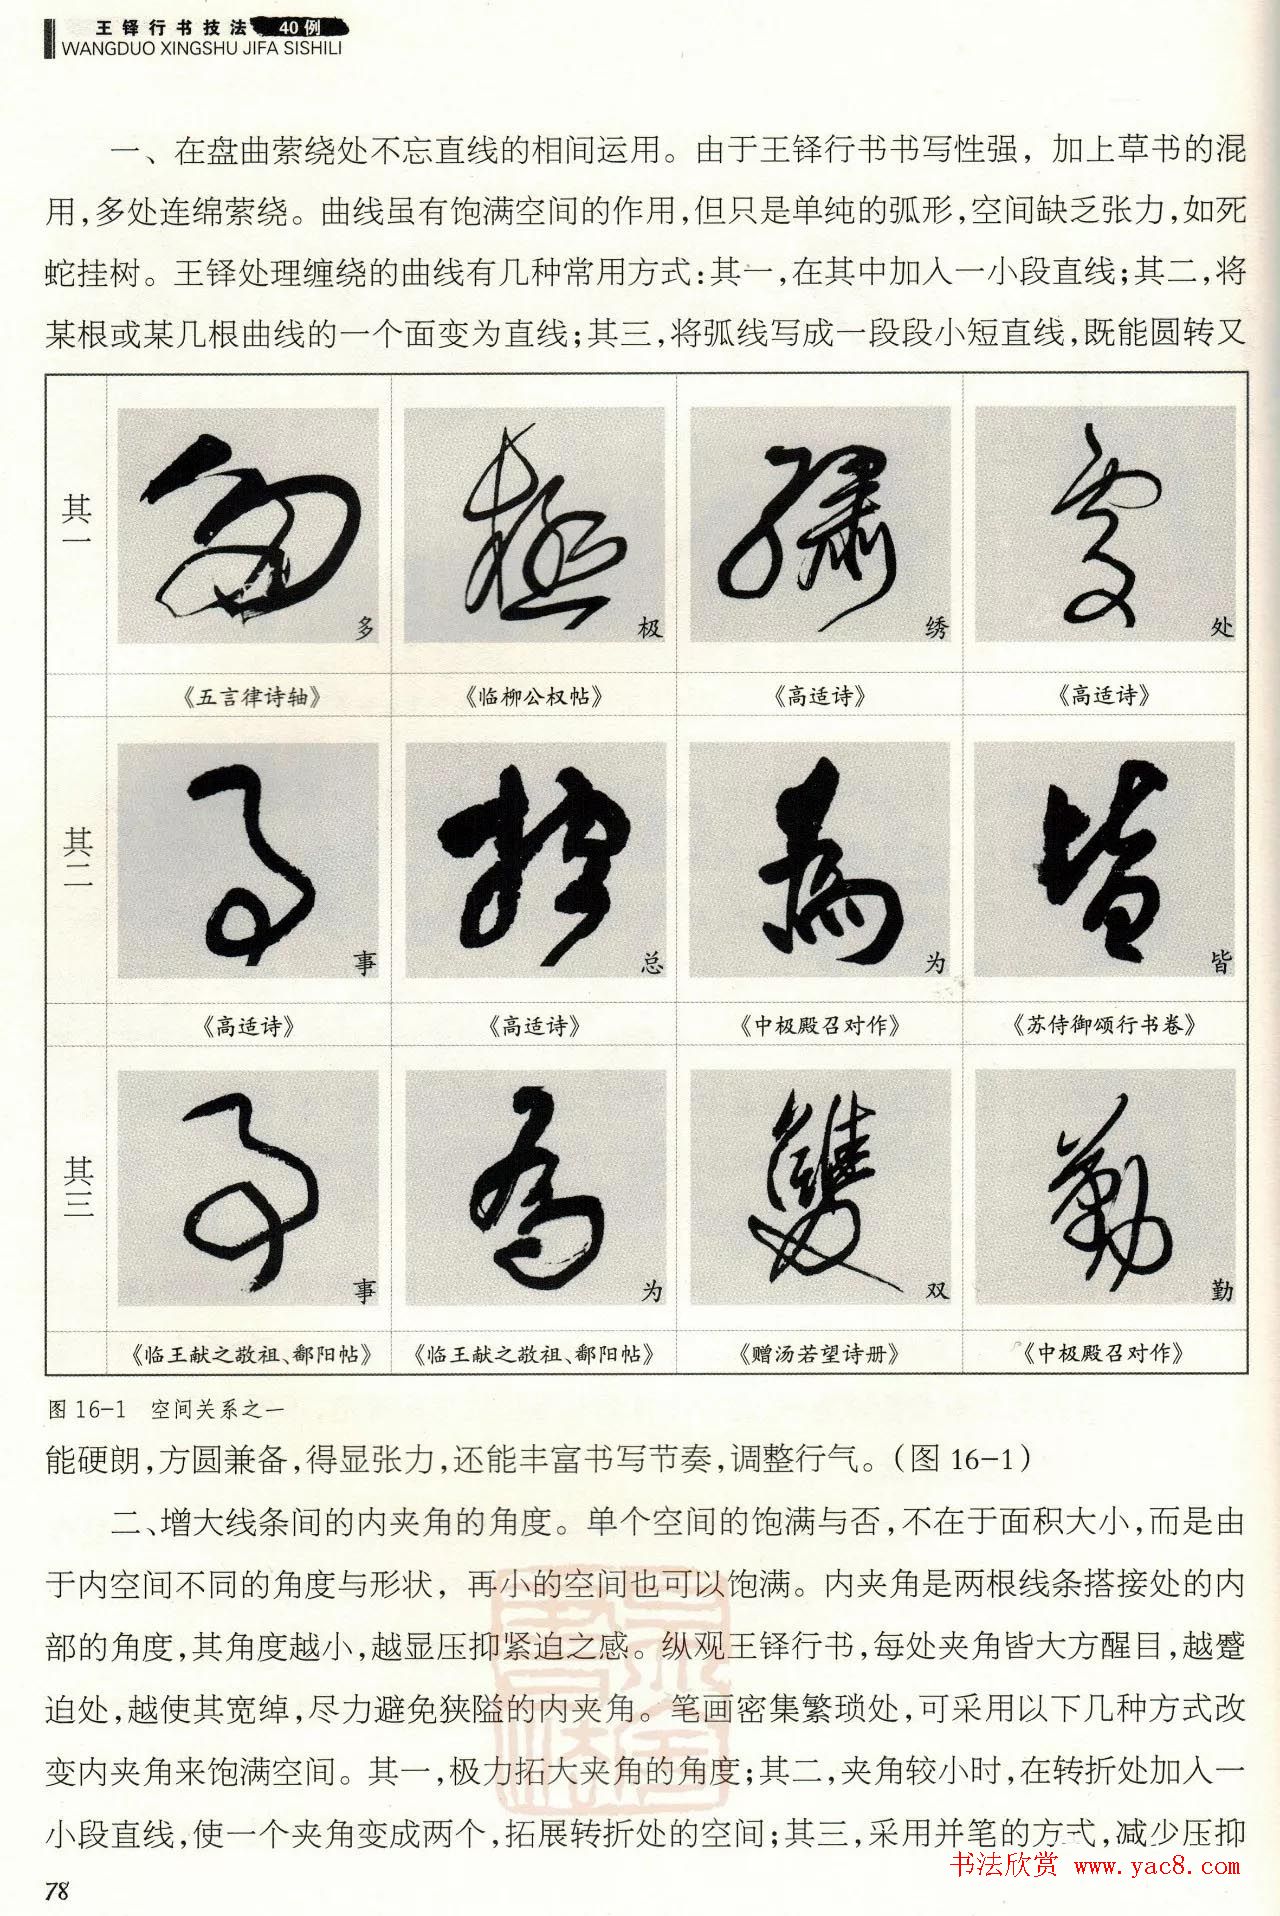 王铎行书技法 40例
WANGDUO XINGSHU JIFA SISHILI
一、在盘曲萦绕处不忘直线的相间运用。由于王铎行书书写性强，加上草书的混
用，多处连绵萦绕。曲线虽有饱满空间的作用，但只是单纯的弧形，空间缺乏张力，如死
蛇挂树。王铎处理缠绕的曲线有几种常用方式：其一，在其中加入一小段直线；其二，将
某根或某几根曲线的一个面变为直线；其三，将弧线写成一段段小短直线，既能圆转又
其一
多 极 绣 处
《五言律诗轴》 《临柳公权帖》 《高适诗》 《高适诗》
其二
事 总 为 皆
《高适诗》 《高适诗》 《中极殿召对作》 《苏侍御颂行书卷》
其三
事 为 双 勤
《临王献之敬祖、鄱阳帖》 《临王献之敬祖、鄱阳帖》 《赠汤若望诗册》 《中极殿召对作》
图 16-1 空间关系之一
能硬朗，方圆兼备，得显张力，还能丰富书写节奏，调整行气。（图 16-1）
二、增大线条间的内夹角的角度。单个空间的饱满与否，不在于面积大小，而是由
于内空间不同的角度与形状，再小的空间也可以饱满。内夹角是两根线条搭接处的内
部的角度，其角度越小，越显压抑紧迫之感。纵观王铎行书，每处夹角皆大方醒目，越蹙
迫处，越使其宽绰，尽力避免狭隘的内夹角。笔画密集繁琐处，可采用以下几种方式改
变内夹角来饱满空间。其一，极力拓大夹角的角度；其二，夹角较小时，在转折处加入一
小段直线，使一个夹角变成两个，拓展转折处的空间；其三，采用并笔的方式，减少压抑
书法欣赏 www.yac8.com
78